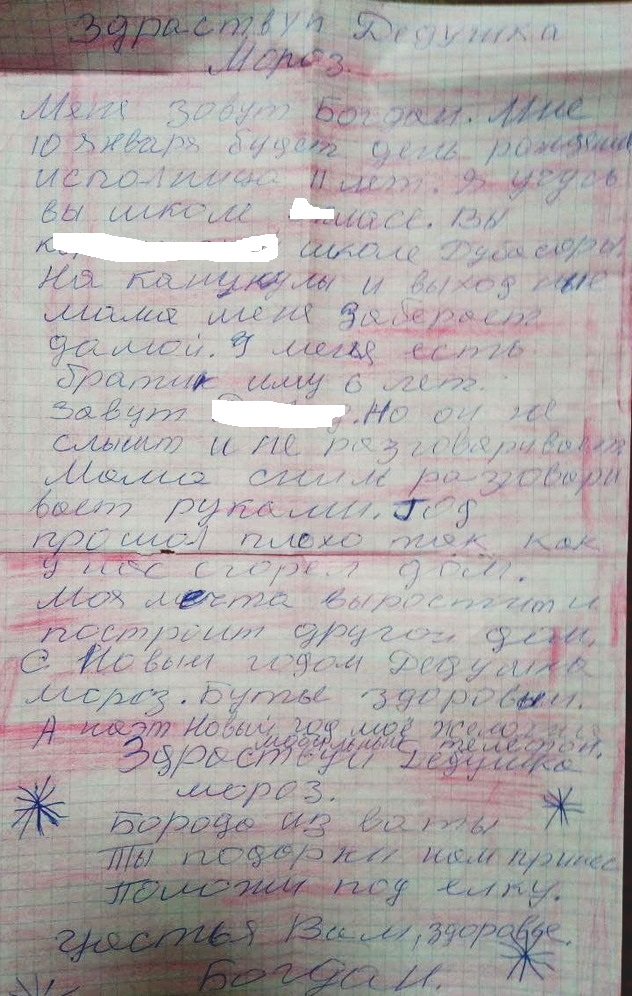 Здраствуй Дедушка
Мороз.
Меня зовут Богдан. Мне
10 января будет день рождения
исполница 11 лет. Я учусь
вы школе класе. Вы
школе Дубасоры.
На канукулы и выходные
мама меня заберает
дамой. У меня есть
братик иму 6 лет.
Завут Но он не
слышит и не разговаривает
Мама сним разговари
вает руками. Год
прошол плохо так как
у нас сгорел дом.
Моя мечта выростит и
построит другой дом.
С Новым годом Дедушка
мороз. Буть здоровым.
А наэт Новый год моё желания
мобильный телефон.
Здраствуй Дедушка
мороз.
Борода из ваты
Ты подарки нам принес
Положи под елку.
Щястья Вам, здоровье.
Богдан.